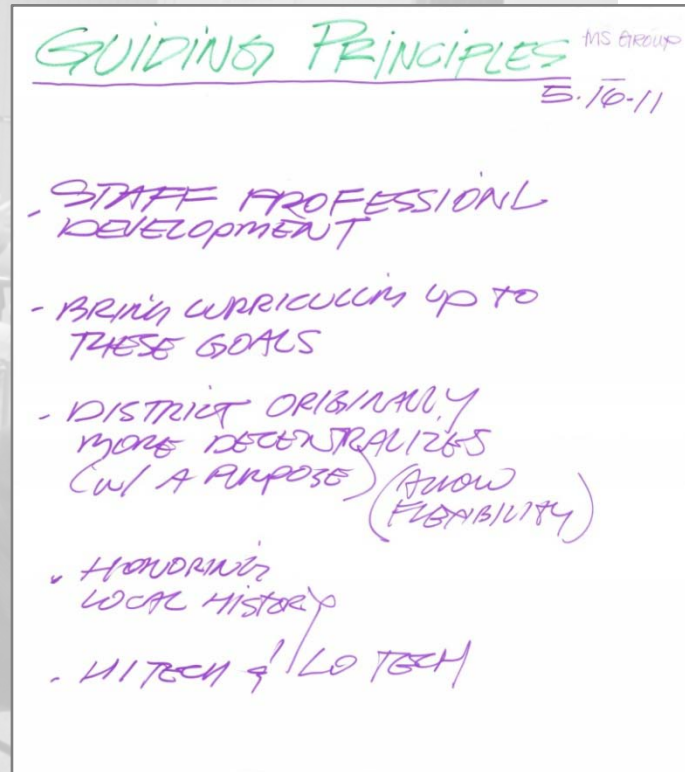 GUIDING PRINCIPLES MS GROUP
5.16-11
- STAFF PROFESSIONL
DEVELOPMENT
- BRING CURRICULUM UP TO
THESE GOALS
- DISTRICT ORIGINALLY
MORE DECENTRALIZES
(W/ A PURPOSE) (ALLOW
FLEXIBILITY)
- HONORING
LOCAL HISTORY
- HI TECH & LO TECH